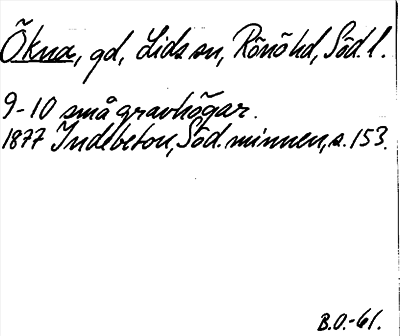 Ökna, gd, Lids sn, Rönö hd, Söd. l.
9-10 små gravhögar.
1877 Indebetou, Söd. minnen, s. 153.
B.O.-61.